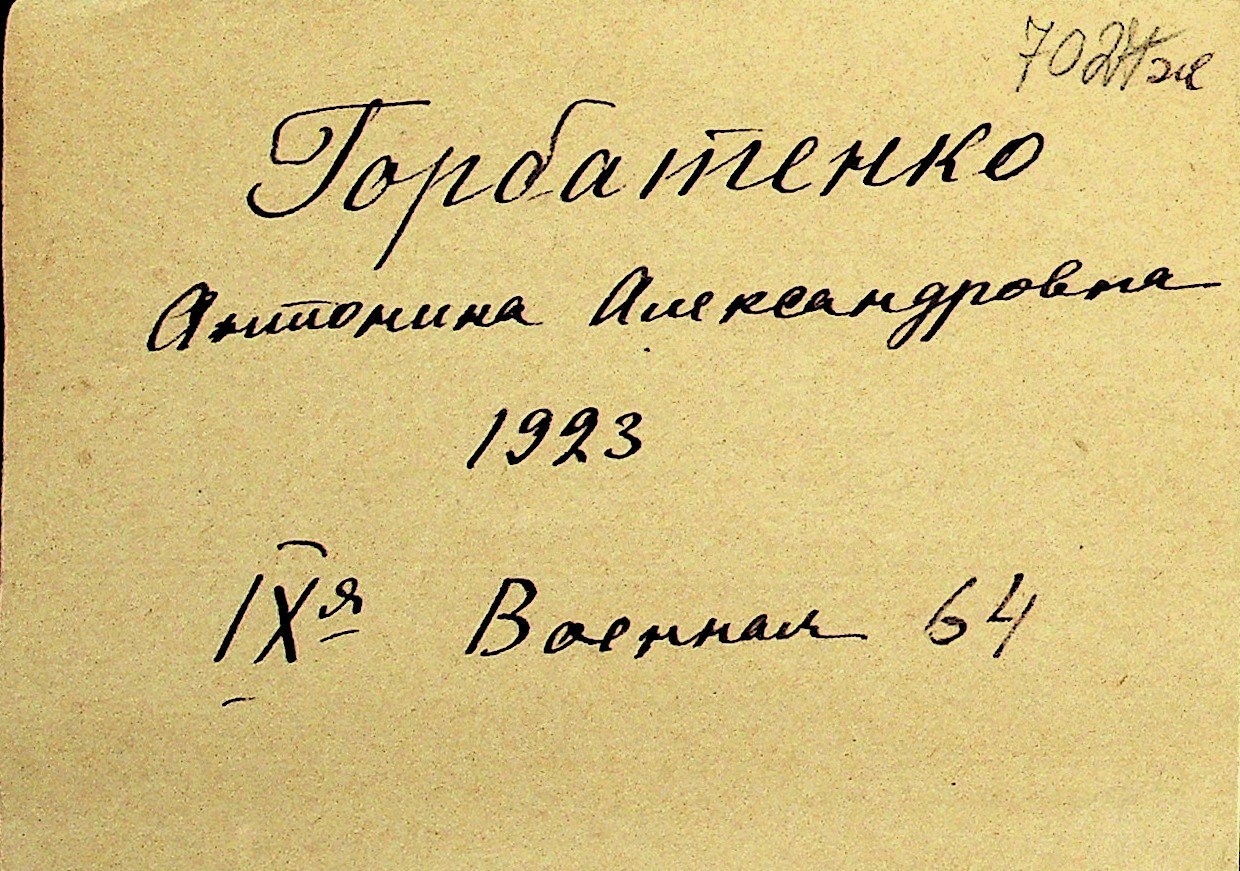 7024ж
Горбатенко
Антонина Александровна
1923
IXя Военная 64